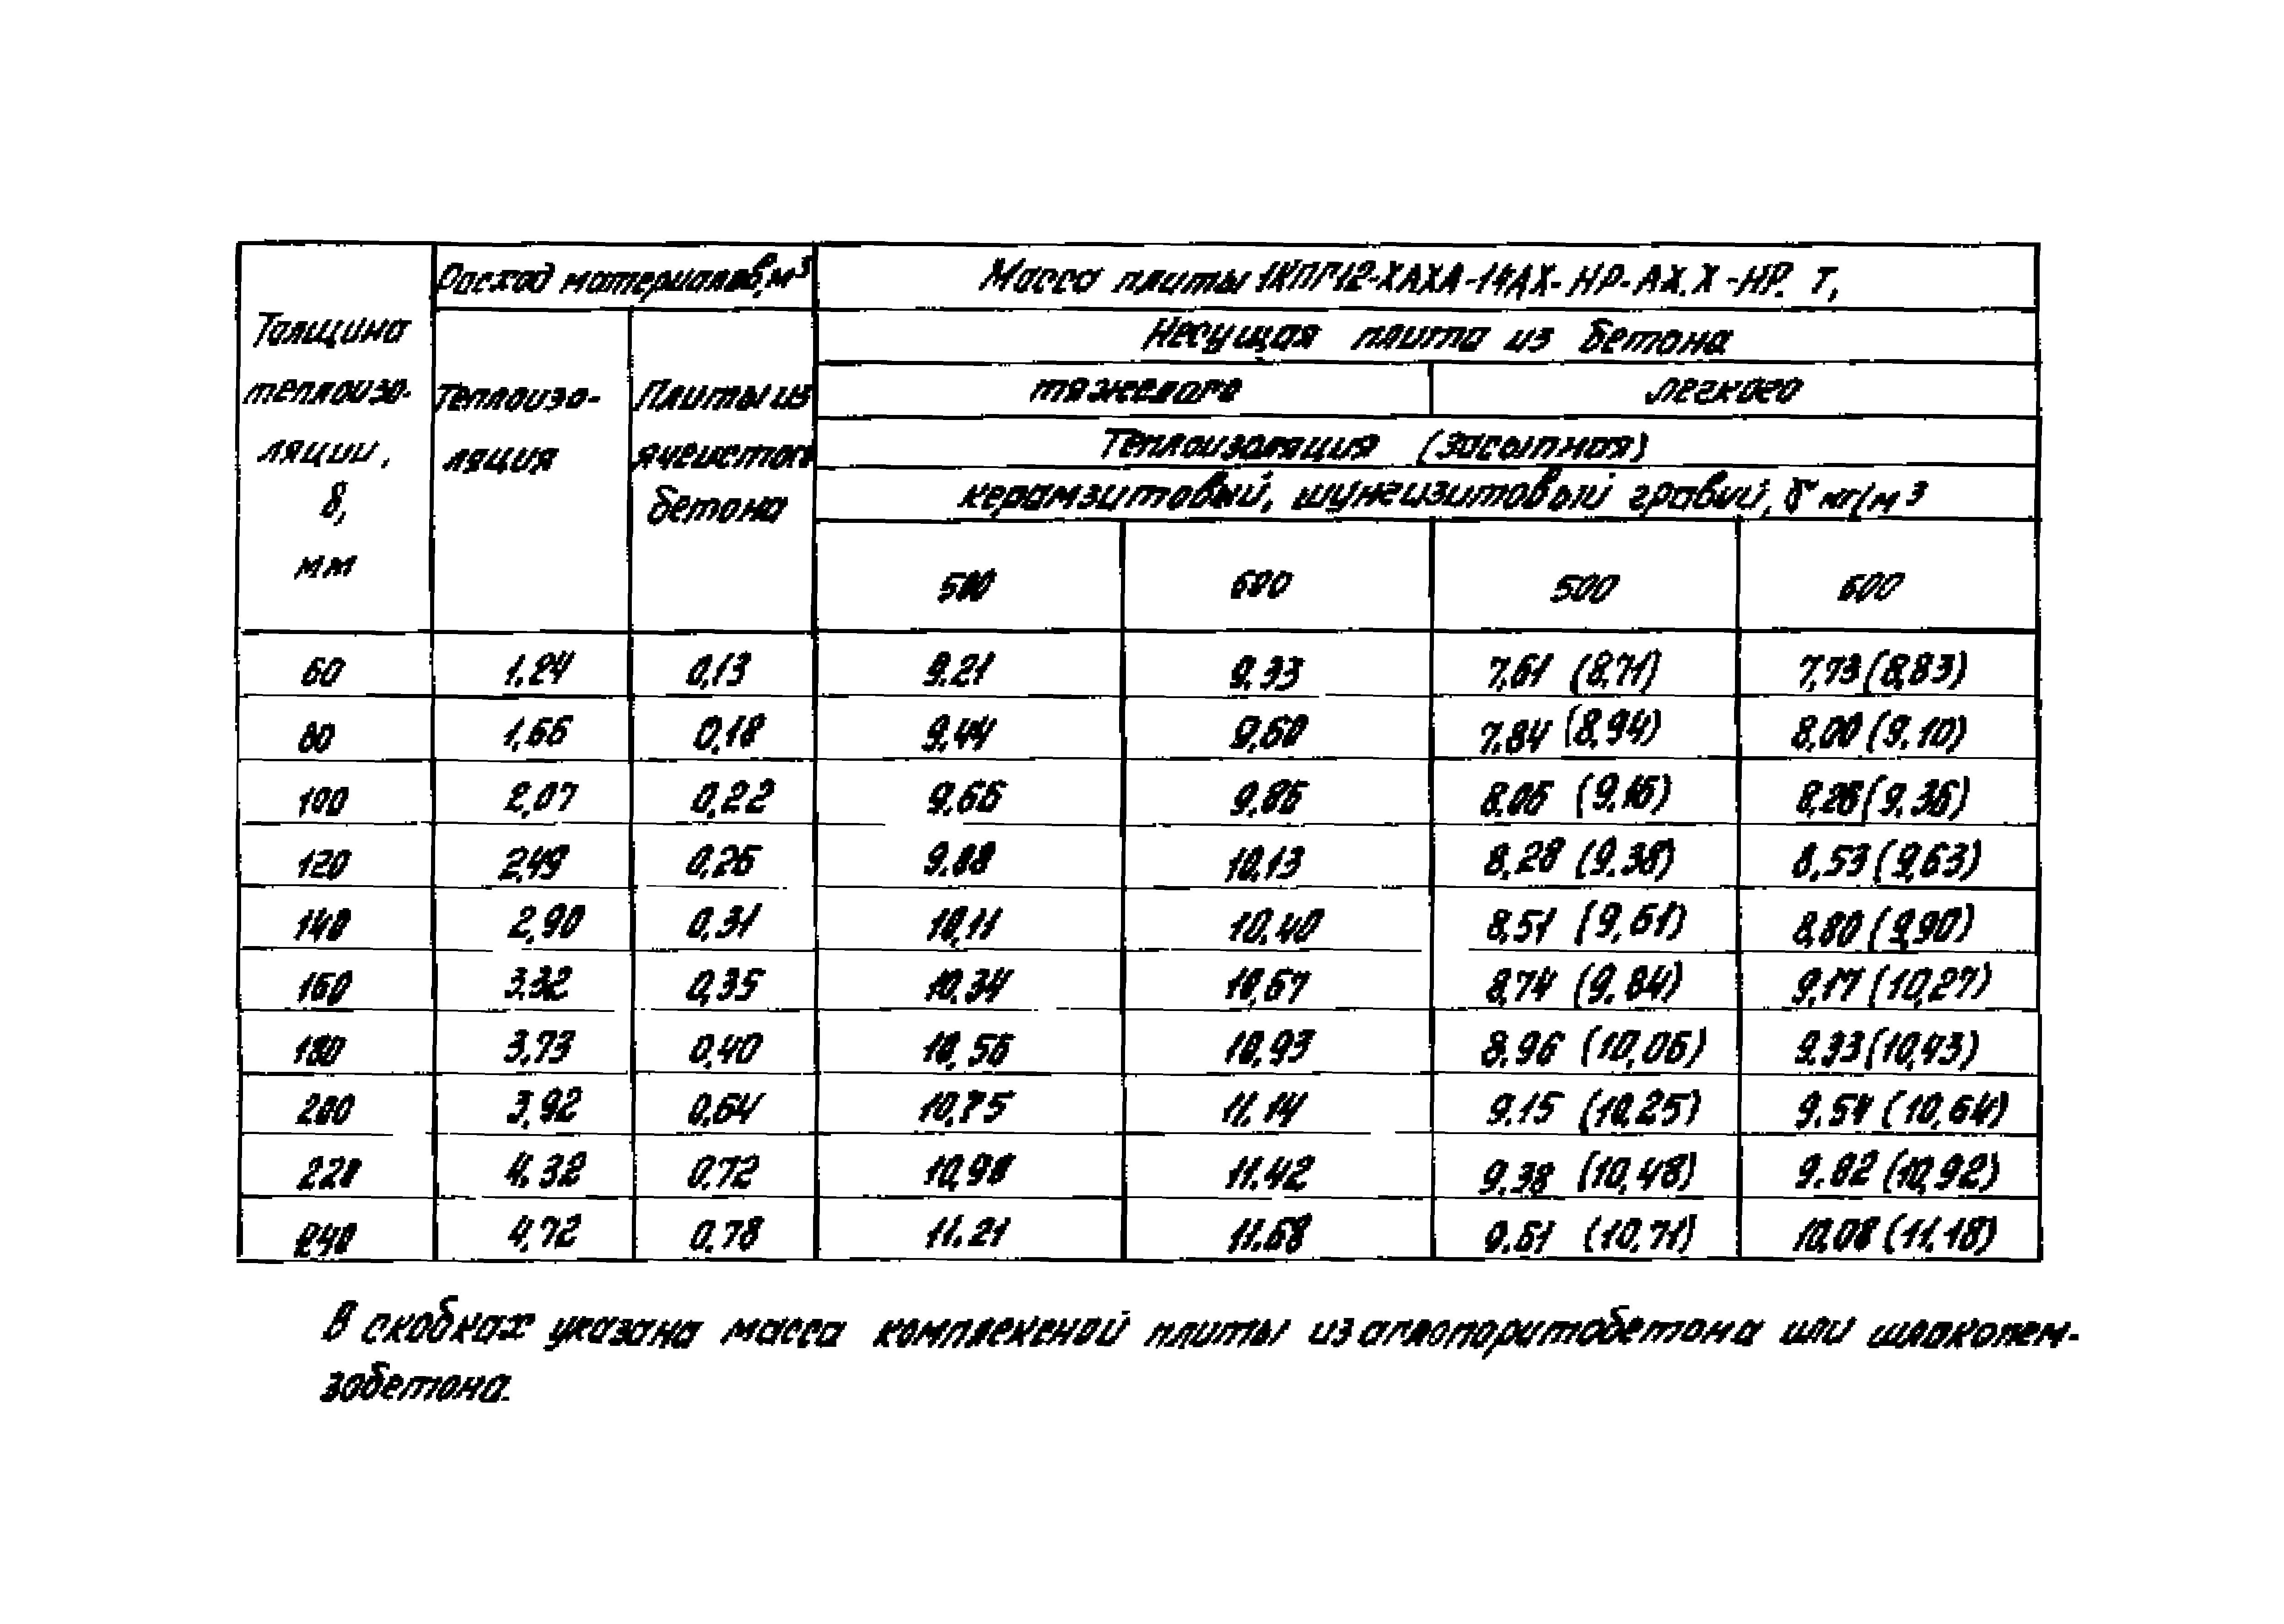 Толщина теплоизо-
ляции,
δ,
мм
Расход материалов, м³
Теплоизо-
ляция
Плиты из
ячеистого
бетона
Масса плиты 1КПГ12-ХАХА-14АХ-НР-АХ.Х-НР. Т,
Несущая плита из бетона
тяжелого легкого
Теплоизоляция (засыпная)
керамзитовый, шунгизитовый гравий, γ кг/м³
500 600 500 600
60 1,24 0,13 9.21 9,33 7,61 (8,71) 7,73 (8,83)
80 1,66 0,18 9.44 9,60 7.84 (8,94) 8,00 (9,10)
100 2,07 0,22 9.66 9.86 8,06 (9,16) 8,26 (9,36)
120 2,49 0,26 9.88 10,13 8,28 (9,38) 8,53 (9,63)
140 2,90 0,31 10,11 10,40 8,51 (9,61) 8,80 (9,90)
160 3,32 0,35 10,34 10,67 8,74 (9,84) 9,17 (10,27)
180 3,73 0,40 10,56 10,93 8,96 (10,06) 9,33 (10,43)
200 3,92 0,64 10,75 11,14 9.15 (10,25) 9,54 (10,64)
220 4,32 0,72 10,98 11.42 9,38 (10,48) 9.82 (10,92)
240 4,72 0,78 11.21 11.68 9,61 (10,71) 10,08 (11,18)
В скобках указана масса комплексной плиты из аглопоритобетона или шлакопем-
зобетона.